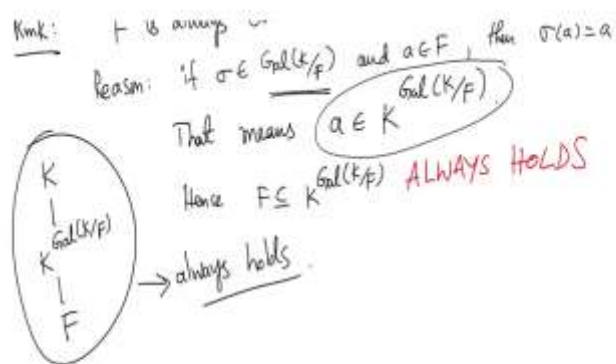 Rmk: F is always
Reason: if σ ∈ Gal(K/F) and a ∈ F, then σ(a) = a
That means a ∈ K^Gal(K/F)
Hence F ⊆ K^Gal(K/F) ALWAYS HOLDS
K
|
K^Gal(K/F)
|
F
→ always holds.